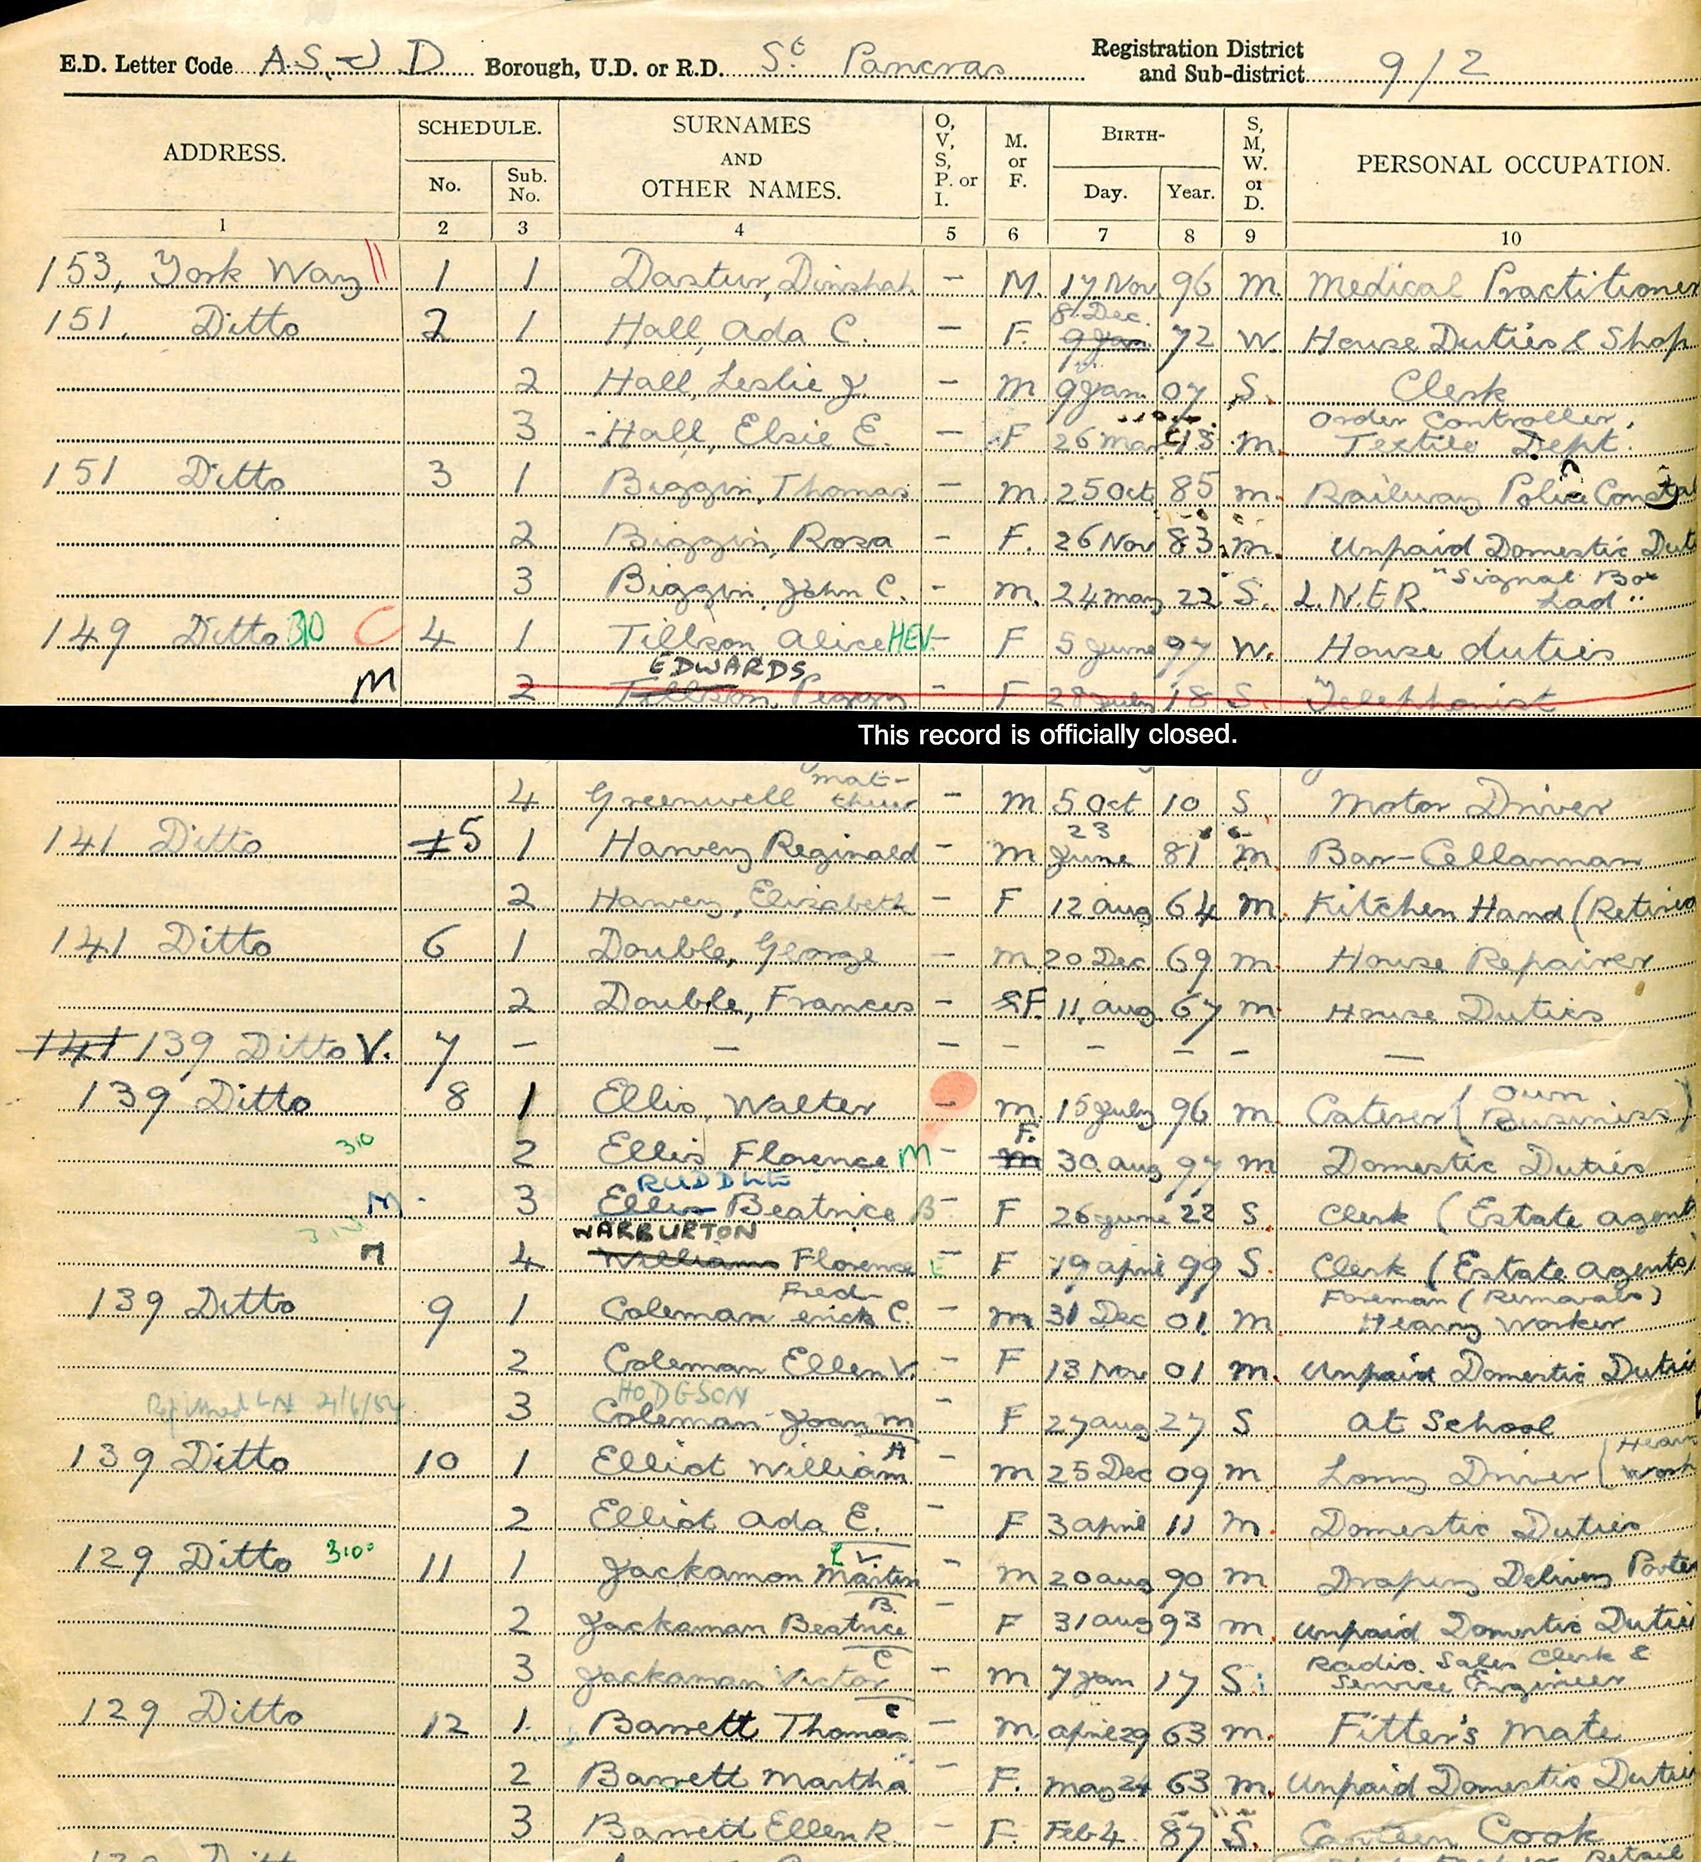 E.D. Letter Code A.S.J.D Borough, U.D. or R.D. St Pancras Registration District and Sub-district 9/2
ADDRESS. SCHEDULE. No. Sub. No. SURNAMES AND OTHER NAMES. O, V, S, P. or I. M. or F. BIRTH- Day. Year. S, M, W. or D. PERSONAL OCCUPATION.
1 2 3 4 5 6 7 8 9 10
153, York Way 1 1 Dastur, Dinshah - M. 17 Nov 96 M. Medical Practitioner
8 Dec.
151, Ditto 2 1 Hall, Ada C. - F. 9 Jan 72 W. House Duties & Shop
2 Hall, Leslie J. - M 9 Jan 07 S. Clerk
Order Controller,
3 Hall, Elsie E. - F 26 Mar 13 M. Textile Dept.
151 Ditto 3 1 Biggin, Thomas - M. 25 Oct 85 M. Railway Police Constab
2 Biggin, Rosa - F. 26 Nov 83 M. Unpaid Domestic Duti
3 Biggin, John C. - M. 24 May 22 S. L.N.E.R. "Signal Box Lad"
149 Ditto 310 C 4 1 Tillson Alice HEV - F 5 June 97 W. House duties
EDWARDS
M 2 Tillson, Peggy - F 28 July 18 S. Telephonist
This record is officially closed.
4 Greenwell Mat-thew - M 5 Oct 10 S Motor Driver
141 Ditto 5 1 Harvey Reginald - M 23 June 81 M. Bar-Cellarman
2 Harvey, Elizabeth - F 12 Aug 64 M. Kitchen Hand (Retired
141 Ditto 6 1 Double, George - M 20 Dec 69 M. House Repairer
2 Double, Frances - F. 11 Aug 67 M. House Duties
141 139 Ditto V. 7 - - - - - - - -
139 Ditto 8 1 Ellis, Walter - M. 15 July 96 M. Caterer (Own Business)
310 2 Ellis Florence M - M F. 30 Aug 97 M Domestic Duties
RUDDLE
M 3 Ellis Beatrice B - F 26 June 22 S. Clerk (Estate Agent
WARBURTON
M 4 Williams Florence E - F 19 April 99 S. Clerk (Estate Agents)
139 Ditto 9 1 Coleman Frederick C. - M 31 Dec 01. M Foreman (Removals) Heavy Worker
2 Coleman Ellen V. - F 13 Nov 01 M. Unpaid Domestic Duties
HODGSON
3 Coleman Joan M - F 27 Aug 27 S At School
139 Ditto 10 1 Elliot William A - M 25 Dec 09 M Lorry Driver (Heavy Work
2 Elliot Ada E. - F 3 April 11 M. Domestic Duties
129 Ditto 310 11 1 Jackaman Martin V. - M 20 Aug 90 M. Drapery Delivery Porter
2 Jackaman Beatrice B. - F 31 Aug 93 M. Unpaid Domestic Duties
3 Jackaman Victor C - M 7 Jan 17 S. Radio Sales Clerk & Service Engineer
129 Ditto 12 1. Barrett Thomas C - M. April 29 63 M. Fitter's Mate
2 Barrett Martha - F. May 24 63 M. Unpaid Domestic Duties
3 Barrett Ellen R. - F Feb 4. 87 S. Canteen Cook